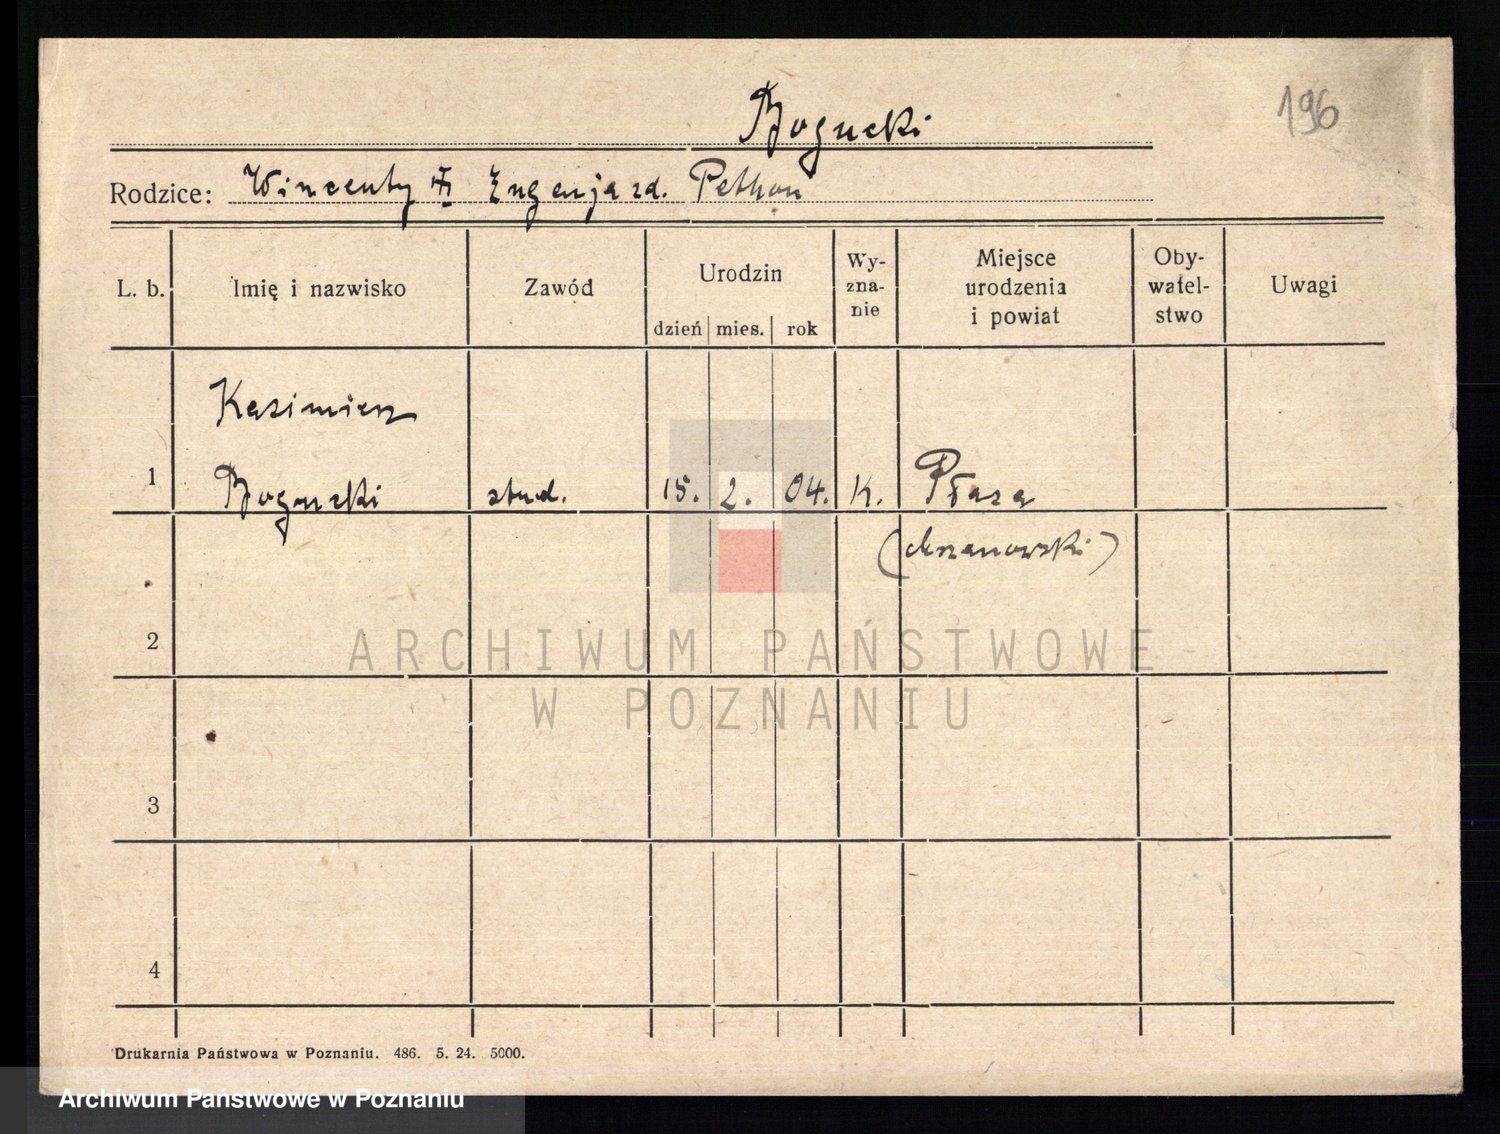 Bogucki
196
Rodzice: Wincenty Eugenja zd. Pethon
L. b. Imię i nazwisko Zawód Urodzin dzień mies. rok Wy-zna-nie Miejsce urodzenia i powiat Oby-watel-stwo Uwagi
Kazimierz
1 Bogucki stud. 15. 2. 04. K. Płaza
(chrzanowski)
2
ARCHIWUM PAŃSTWOWE
W POZNANIU
3
4
Drukarnia Państwowa w Poznaniu. 486. 5. 24. 5000.
Archiwum Państwowe w Poznaniu